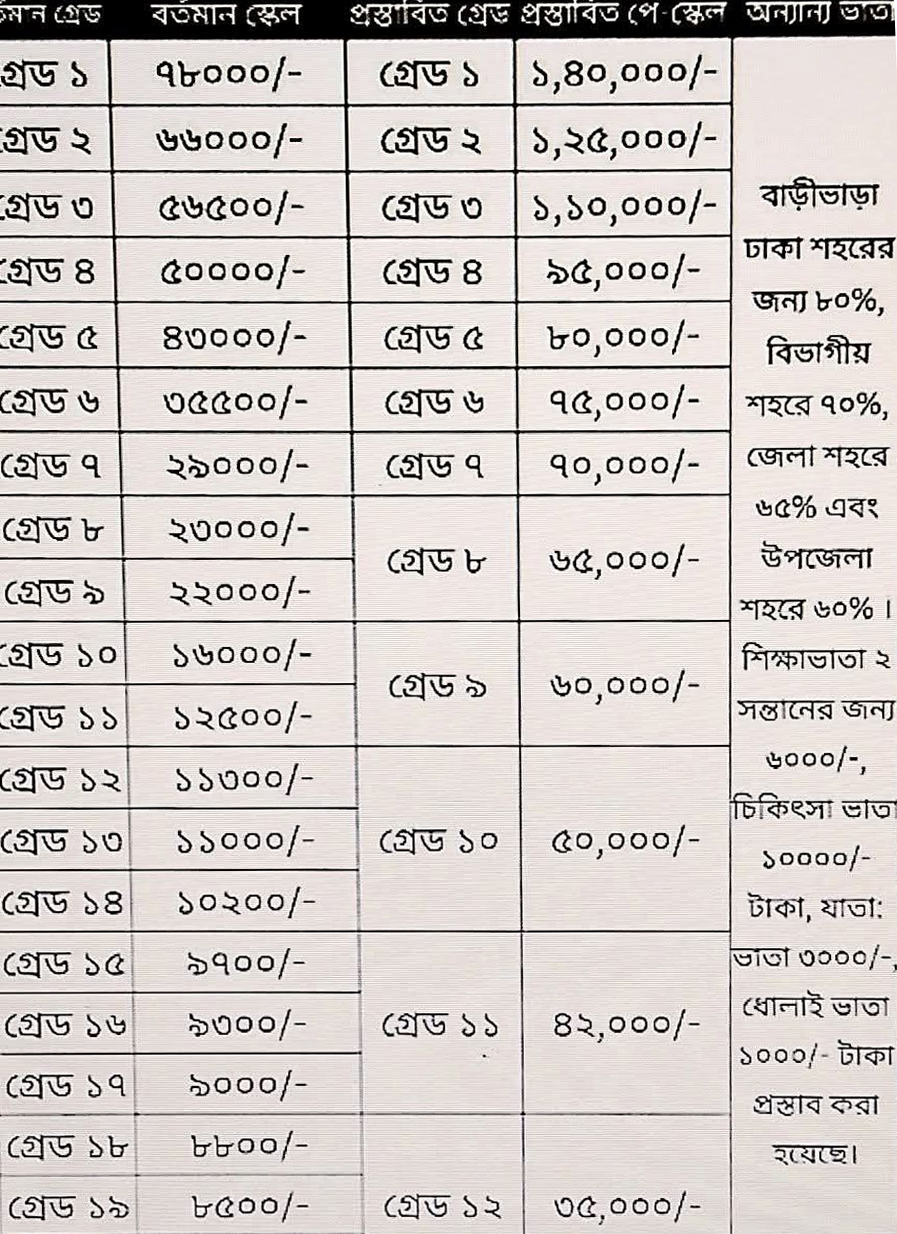 র্তমান গ্রেড বর্তমান স্কেল প্রস্তাবিত গ্রেড প্রস্তাবিত পে-স্কেল অন্যান্য ভাতা
গ্রেড ১ ৭৮০০০/- গ্রেড ১ ১,৪০,০০০/-
গ্রেড ২ ৬৬০০০/- গ্রেড ২ ১,২৫,০০০/-
গ্রেড ৩ ৫৬৫০০/- গ্রেড ৩ ১,১০,০০০/-
গ্রেড ৪ ৫০০০০/- গ্রেড ৪ ৯৫,০০০/-
গ্রেড ৫ ৪৩০০০/- গ্রেড ৫ ৮০,০০০/-
গ্রেড ৬ ৩৫৫০০/- গ্রেড ৬ ৭৫,০০০/-
গ্রেড ৭ ২৯০০০/- গ্রেড ৭ ৭০,০০০/-
গ্রেড ৮ ২৩০০০/-
গ্রেড ৮ ৬৫,০০০/-
গ্রেড ৯ ২২০০০/-
গ্রেড ১০ ১৬০০০/-
গ্রেড ৯ ৬০,০০০/-
গ্রেড ১১ ১২৫০০/-
গ্রেড ১২ ১১৩০০/-
গ্রেড ১৩ ১১০০০/- গ্রেড ১০ ৫০,০০০/-
গ্রেড ১৪ ১০২০০/-
গ্রেড ১৫ ৯৭০০/-
গ্রেড ১৬ ৯৩০০/- গ্রেড ১১ ৪২,০০০/-
গ্রেড ১৭ ৯০০০/-
গ্রেড ১৮ ৮৮০০/-
গ্রেড ১৯ ৮৫০০/- গ্রেড ১২ ৩৫,০০০/-
বাড়ীভাড়া
ঢাকা শহরের
জন্য ৮০%,
বিভাগীয়
শহরে ৭০%,
জেলা শহরে
৬৫% এবং
উপজেলা
শহরে ৬০% ।
শিক্ষাভাতা ২
সন্তানের জন্য
৬০০০/-,
চিকিৎসা ভাতা
১০০০০/-
টাকা, যাতা:
ভাতা ৩০০০/-,
ধোলাই ভাতা
১০০০/- টাকা
প্রস্তাব করা
হয়েছে।